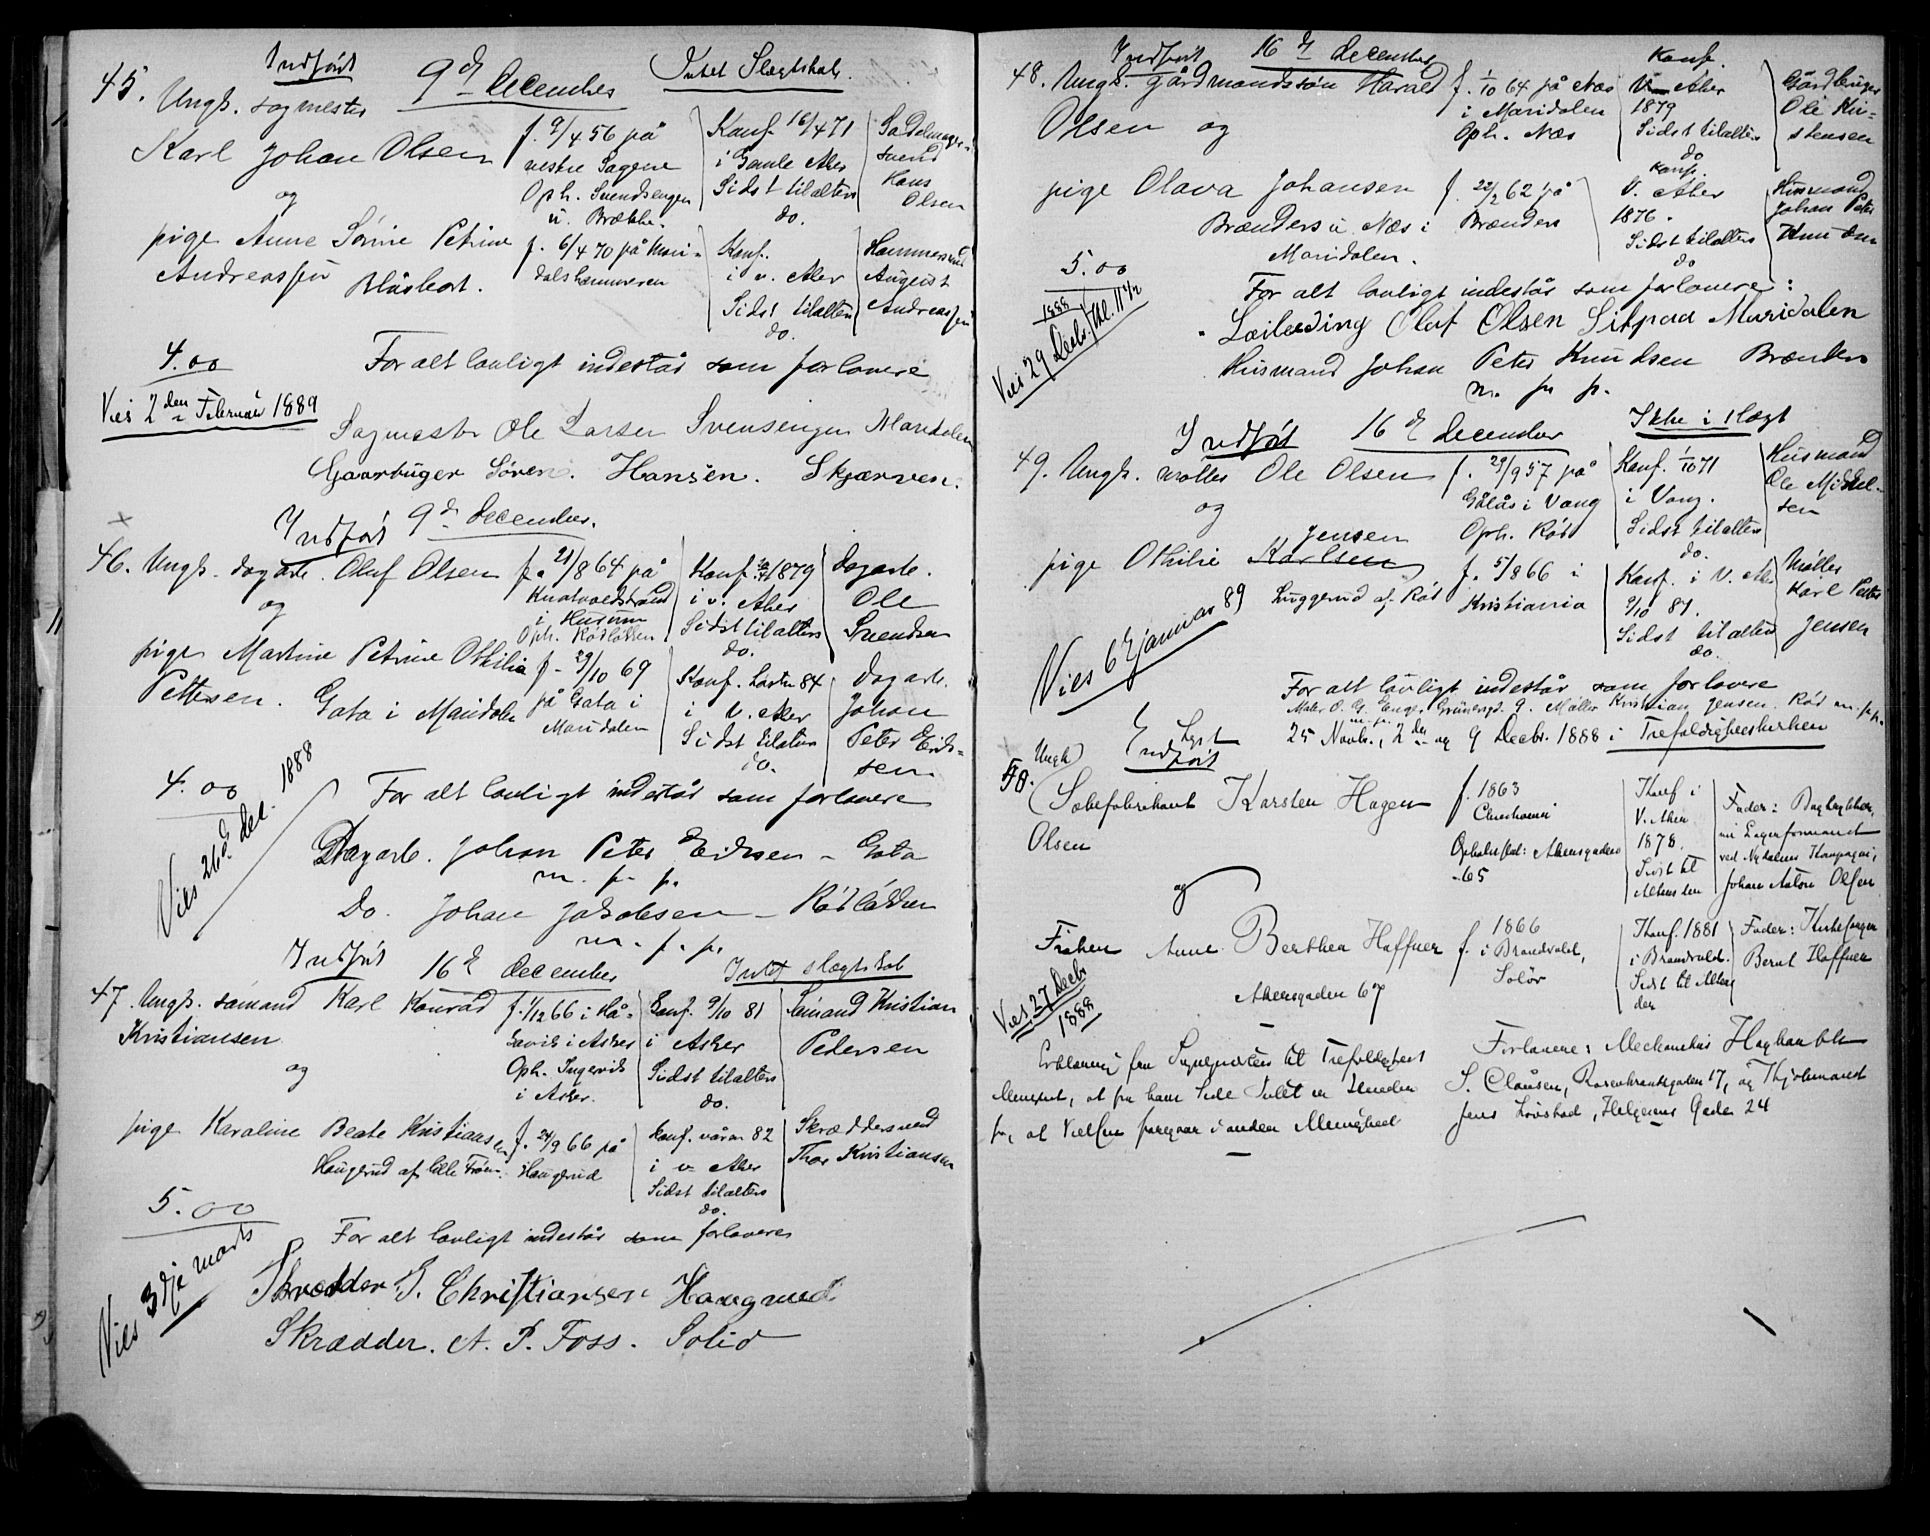 Indført
9de December
Intet Slægtskab.
45. Ungk. sagmester
Karl Johan Olsen
f. 9/4 56 på
vestre Sagene
Oph. Svendsengen
u. Brække.
Konf. 16/4 71
i Gamle Aker
Sidst tilalters
do.
Sadelmager-
svend
Hans
Olsen
og
pige Anne Sørine Petrine
Andreassen
Blåsbort.
f. 6/4 70 på Mari-
dalshammeren
Konf.
i v. Aker
Sidst tilalters
do.
Hammersmed
August
Andreassen
4.00
Viet 2den Februar 1889
For alt lovligt indestår som forlovere
Sagmester Ole Larsen Svensengen Maridalen
Gaarbruger Søren Hansen. Skjærven.
Indført 9de December.
46. Ungk. dagarb. Oluf Olsen
f. 21/8 64 på
i Hurum
Oph. Rødløkken
Konf. 1879
i v. Aker
Sidst tilalters
do.
Dagarb.
Ole
Svendsen
og
pige Martine Petrine Othilia
Pettersen. Gata i Maridalen
f. 29/10 69
på Gata i
Maridalen
Konf. høsten 84
i V. Aker
Sidst tilalters
do.
Dagarb.
Johan
Peter Erik-
sen
4.00
Viet 26de Dec. 1888
For alt lovligt indestår som forlovere
Dagarb. Johan Peter Eriksen – Gata
m. p. p.
Do. Johan Jakobsen – Rødløkken
m. p. p.
Indført 16de December
Intet slægtskab
47. Ungk. sømand Karl Konrad
Kristiansen
f. 1/12 66 i Hå-
kavik i Asker
Oph. Ingervik
i Asker.
Konf. 9/10 81
i Asker
Sidst tilalters
do.
Sømand Kristian
Pedersen
og
pige Karoline Beate Kristiansen
Haugerud af lille Frøen.
f. 24/9 66 på
Haugerud
Konf. våren 82
i v. Aker
Sidst tilalters
do.
Skræddersvend
Thor Kristiansen
5.00
Viet 3dje marts
For alt lovligt indestår som forlovere
Skrædder T. Christiansen Haugerud
Skrædder. A. P. Foss. Solid
Indført 16de December
48. Ungk. gårdmandssøn Harald
Olsen og
f. 1/10 64 på Næs
i Maridalen
Oph. Næs
Konf.
V. Aker
1879
Sidst tilalters
do
Gårdbruger
Ole Kri-
stensen
pige Olava Johansen
Brænders u. Næs i
Maridalen.
f. 22/2 62 på
Brænders
Konf.
V. Aker
1876.
Sidst tilalters
do
Husmand
Johan Peter
Knudsen
5.00
Viet 29 Decb. 1888 kl. 11 1/2
For alt lovligt indestår som forlovere:
Leilending Oluf Olsen Sitpaa Maridalen
Husmand Johan Peter Knudsen Brænden
m. p. p.
Indført 16de December
Ikke i slægt
49. Ungk. møller Ole Olsen
f. 29/9 57 på
Gålås i Vang
Oph. Röd
Konf. 1/10 71
i Vang.
Sidst tilalters
do.
Husmand
Ole Mikkel-
sen
og
pige Othilie Karlsen Jensen
af Röd
f. 5/8 66 i
Kristiania
Konf. i V. Aker
9/10 81.
Sidst tilalters
do.
Møller
Karl Petter
Jensen
Viet 6te Januar 89
For alt lovligt indestår som forlovere
Maler O. G. Enger, Grünersgd. 9. Møller Kristian Jensen. Röd m. p. p.
m. p.
Lyst 25 Novb., 2den og 9 Decbr. 1888 i Trefoldighedskirken
Indført
50. Ungk.
Sæbefabrikant Karsten Hagen
Olsen
f. 1863
Christiania
Opholdssted: Akersgaden
65
Konf i
V. Aker
1878.
Sidst til
Alters den
Fader:
nu Lagerformand
ved Nydalens Kompagni,
Johan Anton Olsen
og
Frøken Anne Berthea Haffner
Akersgaden 67
f. 1866
i Brandvold,
Solør
Konf. 1881
i Brandvold.
Sidst til Alters
den
Fader: Kirkesanger
Bernt Haffner
Viet 27 Decb
1888
Erklæring fra Sogneprästen til Trefoldighed
Menighed, at fra hans Side Intet er til Hinder
for, at Vielsen foregaar i anden Menighed
Forlovere: Mechanikus
S. Clausen, Rosenkrantzgaden 17, og
Jens Lövstad, Helgesens Gade 24